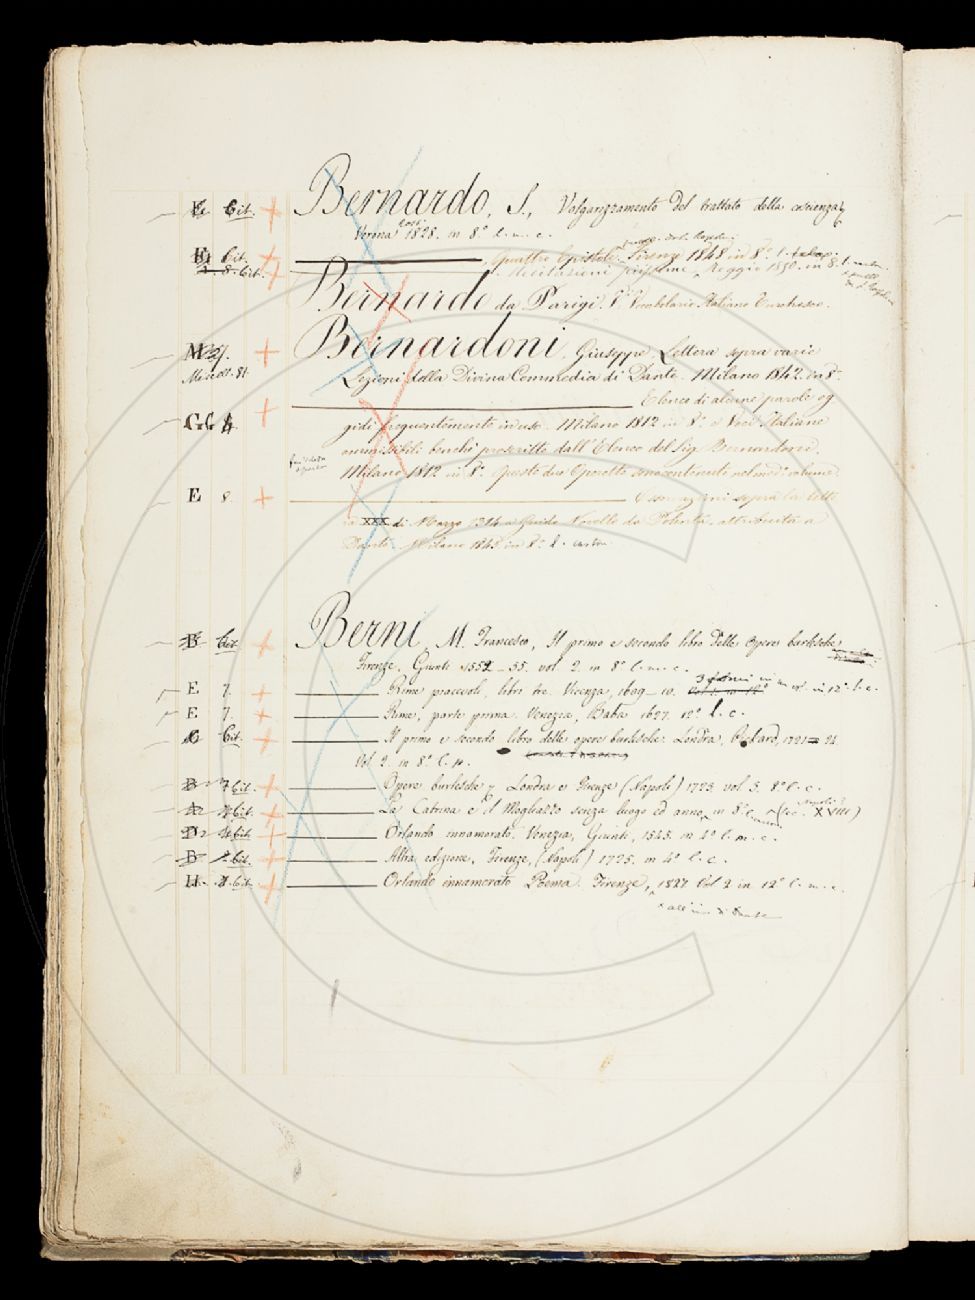 E Cit. Bernardo, S., Volgarizzamento del trattato della coscienza,
Verona 1828. in 8.° l. m. c.
E Cit. Quattro Epistole. Firenze 1848 in 8.°
8. Cit. Recitazioni Reggio 1850. in 8.
Bernardo da Parigi. V. Vocabolario Italiano Turchesco.
M Bernardoni, Giuseppe, Lettera sopra varie
Miscell. 81. Lezioni della Divina Commedia di Dante. Milano 1842. in 8.°
Elenco di alcune parole og
gidì frequentemente in uso. Milano 1812 in 8.° e Voci Italiane
ammissibili benchè proscritte dall'Elenco del Sig. Bernardoni.
Milano 1812 in 8.° Queste due Operette
E 8 Osservazioni sopra la lette
ra XXX di Marzo 1314 a Guido Novello da Polenta, attribuita a
Dante. Milano 1845 in 8.°
B Cit. Berni, M. Francesco, Il primo e secondo libro delle Opere burlesche
Firenze, Giunti 1552-55. vol. 2. in 8.° l. m. c.
E 7. Rime piacevoli, libri tre. Vicenza, 1609-10. in 12.° l. c.
E 7. Rime, parte prima. Venezia, Baba 1627. 12.° l. c.
Cit. Il primo e secondo libro delle opere burlesche. Londra, 1721 = 24
Vol. 2. in 8.°
B Cit. Opere burlesche Londra e Firenze (Napoli) 1723. vol. 3. 8.° l. c.
Cit. La Catrina e il Mogliazzo senza luogo ed anno, in 8.° (sec. XVIII)
Cit. Orlando innamorato, Venezia, Giunti, 1545. in 4.° l. m. c.
B Cit. Altra edizione, Firenze, (Napoli) 1725. in 4.° l. c.
H Cit. Orlando innamorato Poema. Firenze, 1827 Vol. 2 in 12.° l. m. c.